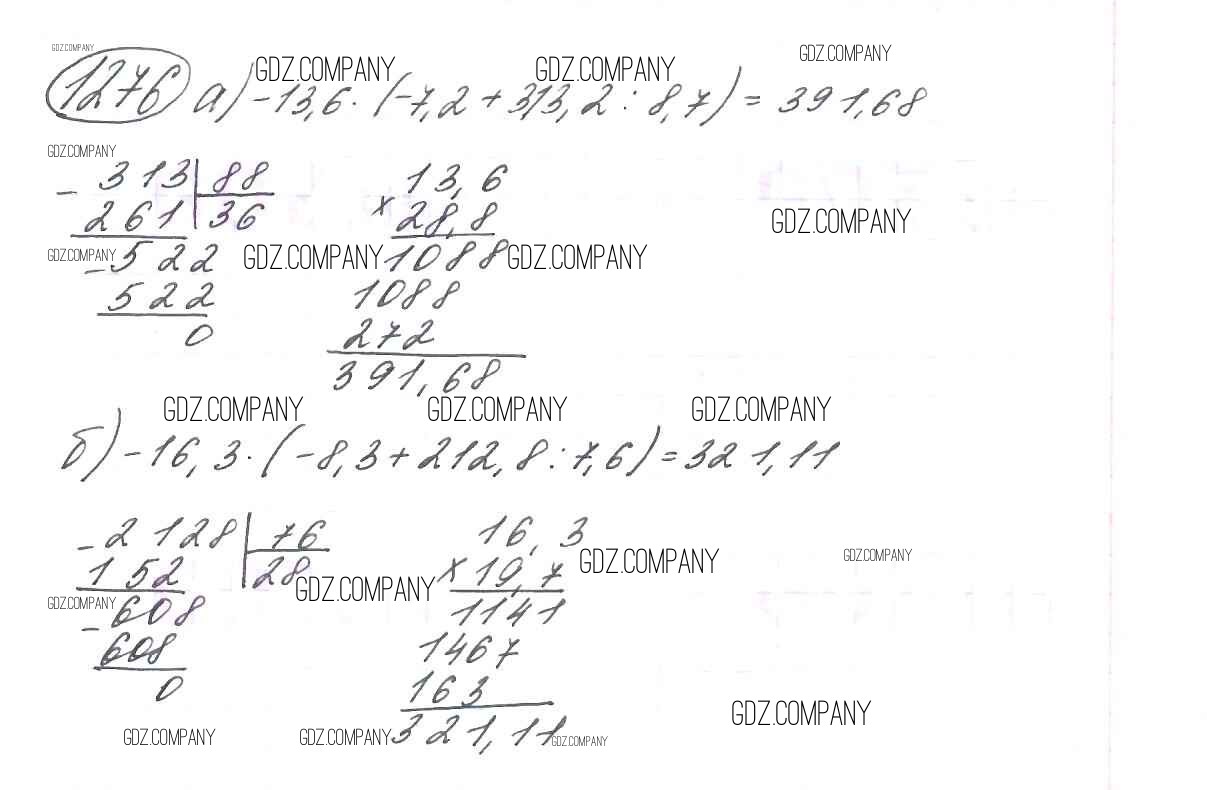 GDZ.COMPANY
1276 а) -13,6 · (-7,2 + 313,2 : 8,7) = 391,68
GDZ.COMPANY GDZ.COMPANY GDZ.COMPANY
GDZ.COMPANY
- 313 | 88
261 | 36
- 522
522
0
13,6
× 28,8
1088
1088
272
391,68
GDZ.COMPANY
GDZ.COMPANY GDZ.COMPANY GDZ.COMPANY
GDZ.COMPANY GDZ.COMPANY GDZ.COMPANY
б) -16,3 · (-8,3 + 212,8 : 7,6) = 321,11
- 2128 | 76
152 | 28
- 608
608
0
16,3
× 19,7
1141
1467
163
321,11
GDZ.COMPANY GDZ.COMPANY GDZ.COMPANY
GDZ.COMPANY
GDZ.COMPANY
GDZ.COMPANY GDZ.COMPANY GDZ.COMPANY